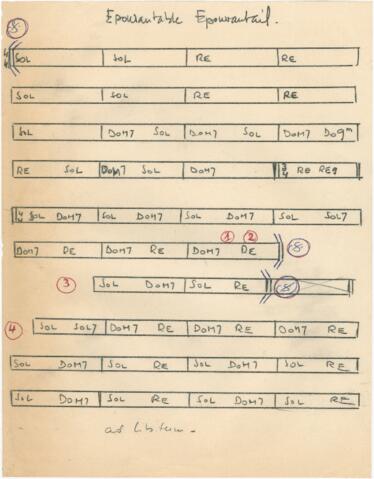 Epouvantable Epouvantail.
8
4/4 SOL SOL RE RE
SOL SOL RE RE
SOL DOM7 SOL DOM7 SOL DOM7 DO9m
RE SOL DOM7 SOL DOM7 3/4 RE RE9
4/4 SOL DOM7 SOL DOM7 SOL DOM7 SOL SOL7
1 2
DOM7 RE DOM7 RE DOM7 RE 8
3 SOL DOM7 SOL RE 8
4 SOL SOL7 DOM7 RE DOM7 RE DOM7 RE
SOL DOM7 SOL RE SOL DOM7 SOL RE
SOL DOM7 SOL RE SOL DOM7 SOL RE
ad libitum.